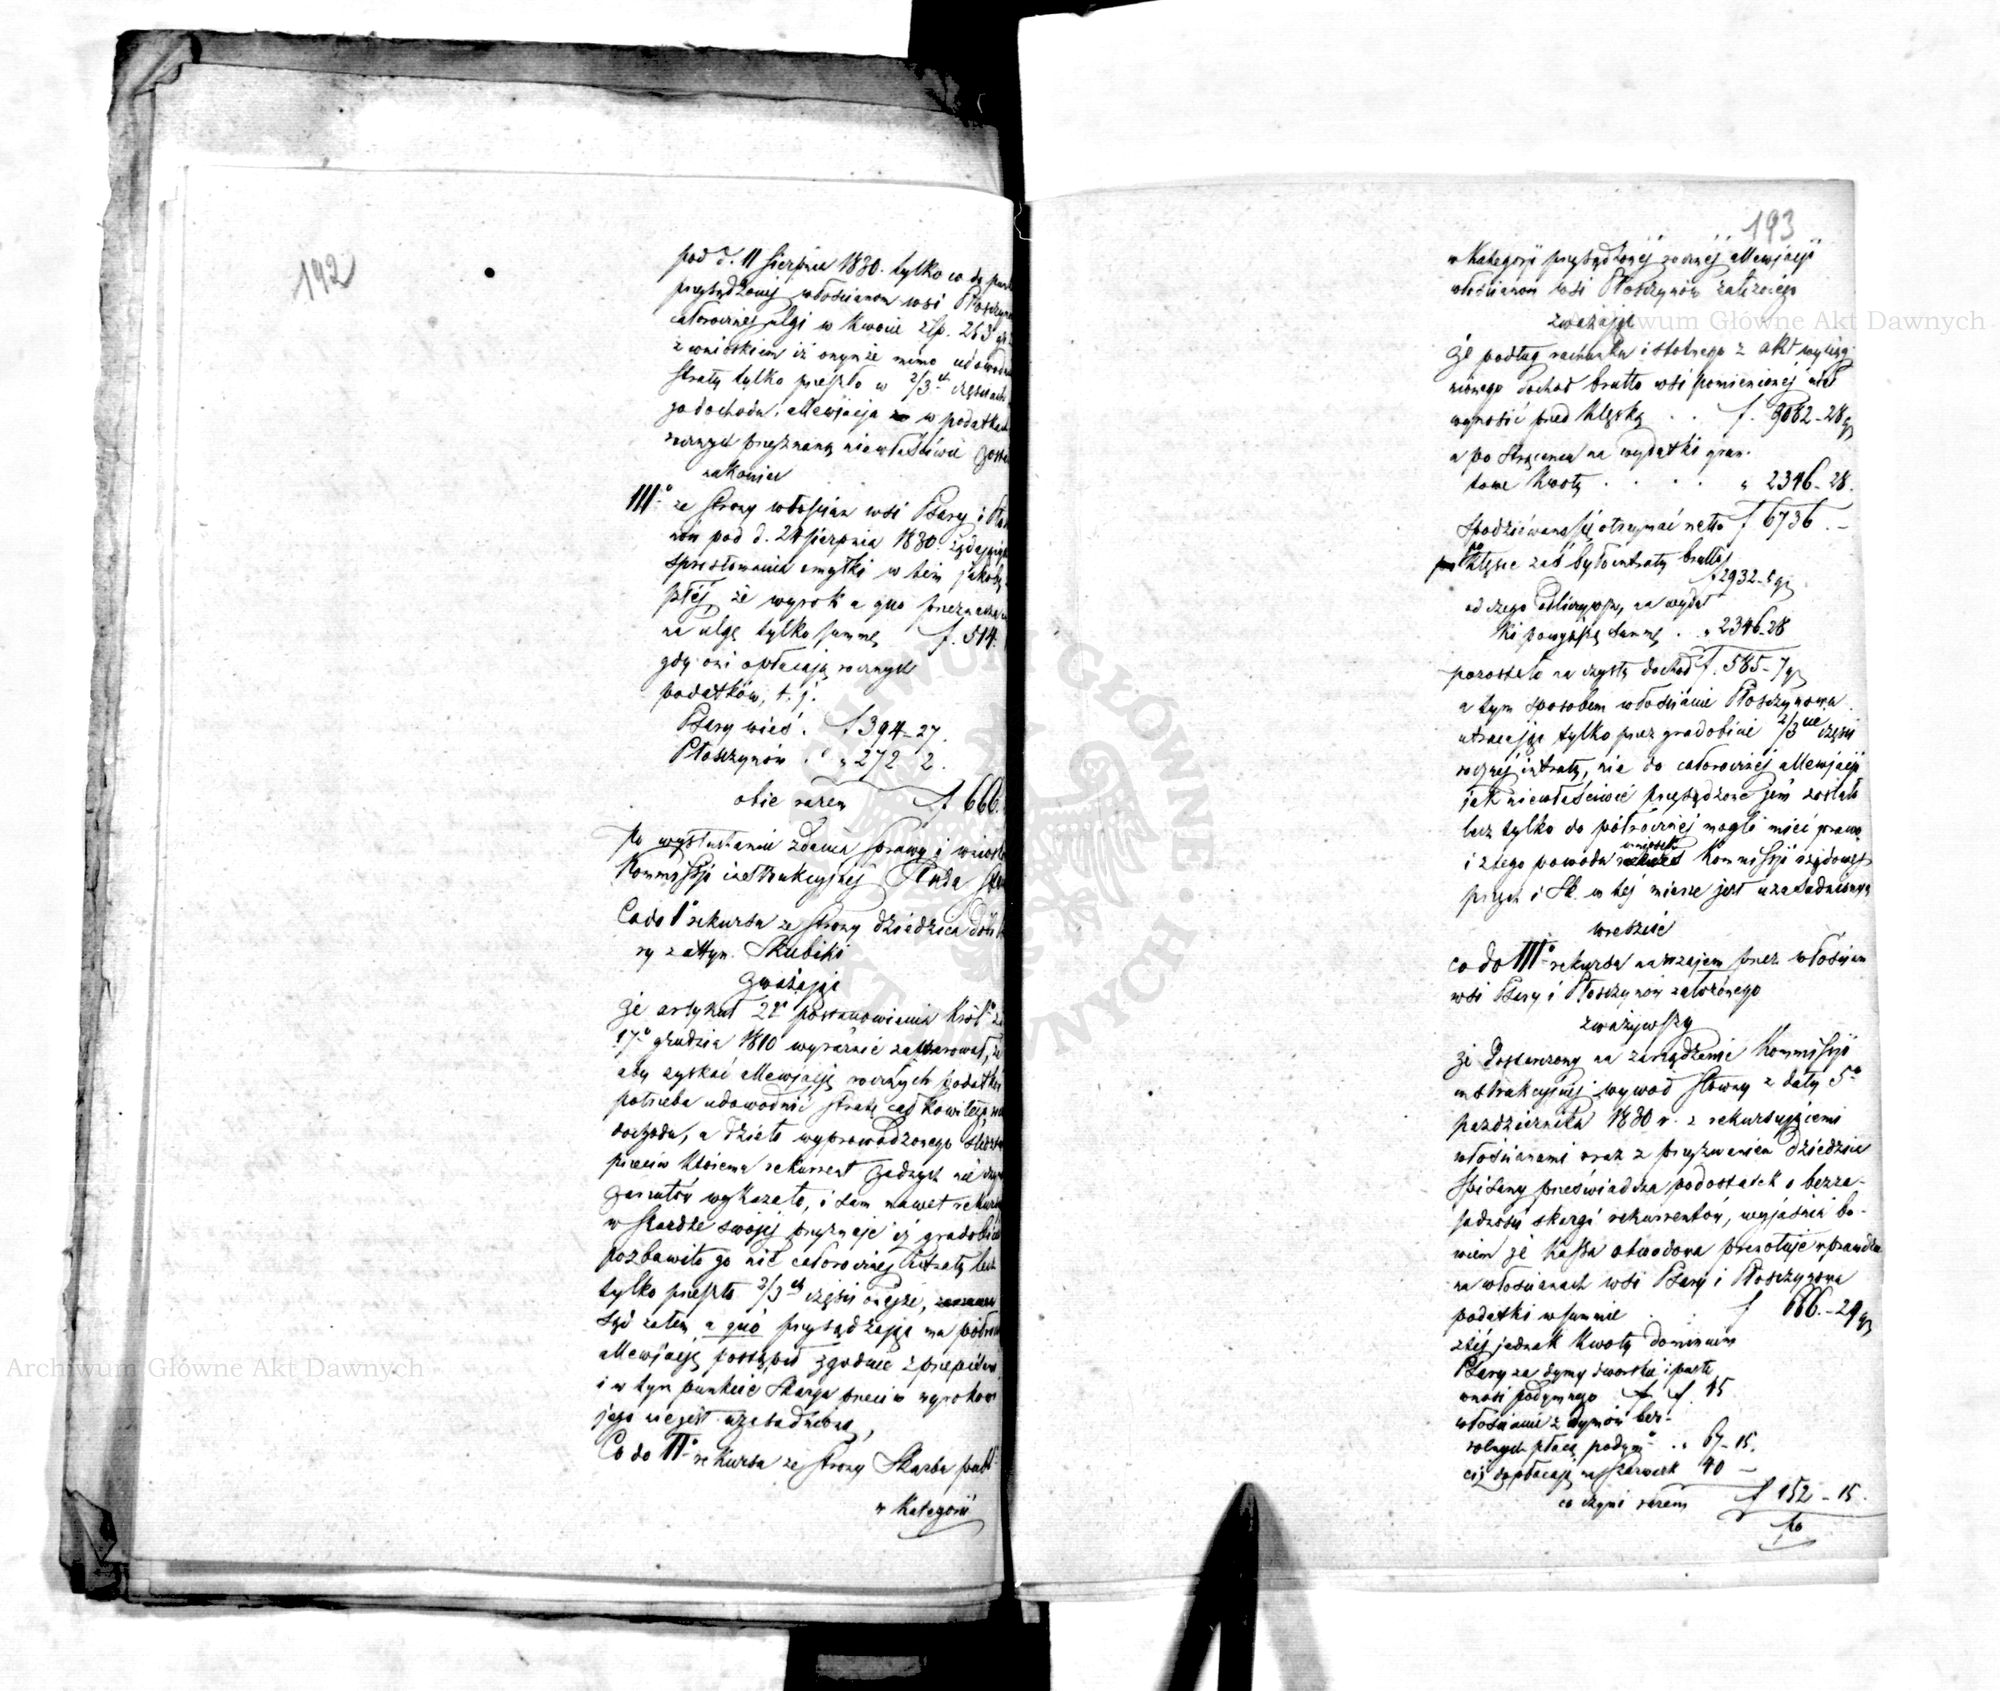 192
pod d. 11 Sierpnia 1830. tylko co do
przysądzonej włościanom wsi Płoszczynow
całorocznej ulgi w kwocie złp. 253
z wnioskiem iż onymże mimo udowodn
straty tylko przeszło w 2/3ch częściach
go dochodu, allewjacja w podatkach
rocznych przyznaną niewłaściwie zosta
nakoniec
IIIo ze strony włościan wsi Psary i Płosz
now pod d. 24 Sierpnia 1830. żądających
sprostowania omyłki w tém jakoby
płéj, że wyrok a quo przeznacza
na ulgę tylko summę f. 514.
gdy oni opłacają rocznych
podatków, t. j.
Psary wieś . f 394 - 27.
Płoszczynów . „ 272 - 2.
obie razem f 666.
Po wysłuchaniu zdania sprawy i wniosku
Kommissji instrukcyjnéj Rada Stanu
Co do Io rekursu ze strony dziedzica dóbr
ry z attyn. Skubiki
Zważając
że artykuł 21 postanowienia Król: z d
17o grudnia 1810 wyraźnie zawarował, że
aby zyskać allewjację rocznych podatków
potrzeba udowodnić stratę całkowitego
dochodu, a dzieło wyprowadzonego śledztwa
przeciw któremu rekurrent żadnych nie czyni
zarzutów wykazało, i sam nawet rekurrent
w skardze swojéj przyznaje iż gradobicie
pozbawiło go nie całorocznej intraty lecz
tylko przeszło 2/3ch części onejże,
Sąd zatem a quo przysądzając mu półroczną
allewjację postąpił zgodnie z przepisami
i w tym punkcie skarga przeciw wyrokowi
jego niejest uzasadnioną,
Co do IIo rekursu ze strony Skarbu publ:
w kategorii
193
w Kategorji przysądzonéj rocznéj allewjacji
włościanom wsi Płoszczynów założonego
zważając
że podług rachunku istotnego z akt wyciąg-
nionego dochód brutto wsi pomienionéj miał
wynosić przed klęską . . f. 9082 - 28 gr
a po strąceniu na wydatki grun-
towe kwoty . . . . „ 2346 - 28.
spodziewano się otrzymać netto f 6736. -
po klęsce zaś było intraty brutto
f 2932 - 5 gr
od czego odliczywszy na wydat
ki powyższą summę . . „ 2346 - 28
pozostało na czysty dochód f. 585 - 7 gr
a tym sposobem włościanie Płoszczynowa
utracając tylko przez gradobicie 2/3cie części
rocznéj intraty, nie do całorocznéj allewjacji
jak niewłaściwie przysądzone jém zostało
lecz tylko do półrocznéj mogli mieć prawo
i z tego powodu wniosek Kommissji rządowéj
przych: i Sk. w téj mierze jest uzasadnionym
wreszcie
co do IIIo rekursu nawzajem przez włościan
wsi Psary i Płoszczynow założonego
zważywszy
że dostarczony na zarządzenie Kommissji
instrukcyjnéj wywód słowny z daty 5o
października 1830 r. z rekursującemi
włościanami oraz z przyzwaniem dziedzica
spisany przeświadcza podostatek o bezza-
sadności skargi rekurrentów, wyjaśnia bo-
wiem że Kassa obwodowa prenotuje wprawdzie
na włościanach wsi Psary i Płoszczynowa
podatki w summie f 666. - 29 gr
z téj jednak kwoty dominium
Psary za dymy dworskie i puste
wnosi podymnego f. 45
włościanie z dymów bez-
rolnych płacą podym: . „ 67 - 15.
ciż dopłacają na szarwark 40 -
co czyni razem f 152 - 15.
po
Archiwum Główne Akt Dawnych
Archiwum Główne Akt Dawnych